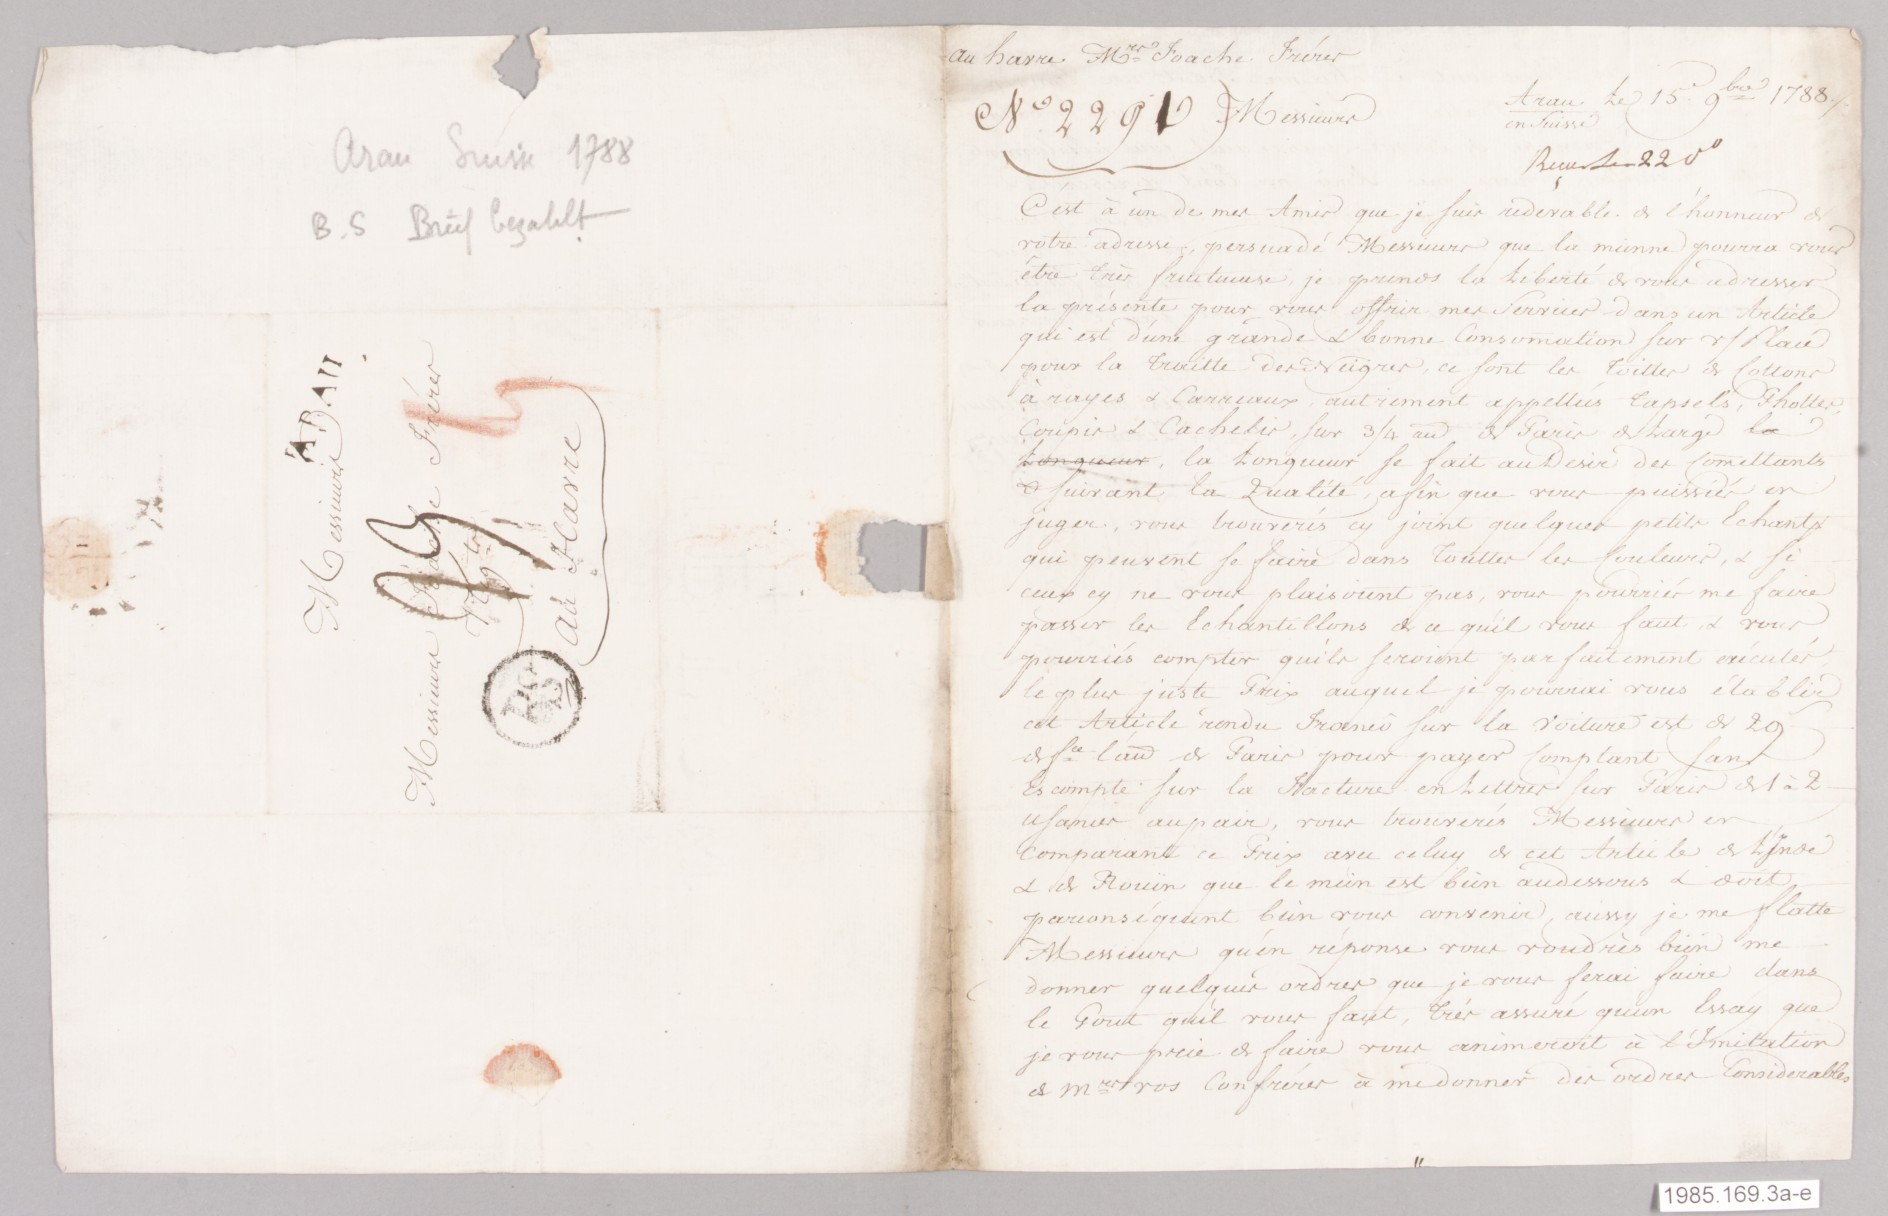 Arau Suisse 1788
B.S Brief bezahlt
ARAU
Messieurs
Messieurs Foache Frères
Negts
au Havre
au havre. Mrs Foache Fréres
No. 2291 Messieurs
Arau Le 15e 9bre 1788
en Suisse
Recue Le 22 do
C'ést à un de mes Amis que je suis redevable de l'honneur de
votre adresse, persuadé Messieurs que la mienne pourra vous
être très fructueuse, je prends la Liberté de vous adresser
la présente pour vous offrir mes Services dans un Article
qui est d'une grande & bonne Consomation sur v/ Place
pour la Traitte des Négres, ce sont les Toilles de Cottons
à rayes & Carreaux autrement appellées Tapsels, Chollets,
Coupis & Cachelis, sur 3/4 au de Paris de Large la
Longueur, la Longueur se fait au Desir des Comettants
& suivant la Qualité, afin que vous puissiés en
juger, vous trouverés cy joint quelques petits Echants
qui peuvent se faire dans toutes les Couleurs, & si
ceux cy ne vous plaisoient pas, vous pourriés me faire
passer les Echantillons de ce qu'il vous faut, & vous
pourriés compter qu'ils seroient parfaitement exécutés,
le plus juste Prix auquel je pourrai vous établir
cet Article rendu Franco sur la Voiture est de 29
de fce l'au de Paris pour payer Comptant sans
escompte sur la Facture en Lettres sur Paris de 1 à 2
usances au pair, vous trouverés Messieurs en
Comparant ce Prix avec celuy de cet Article de L'Jnde
& de Roüen que le mien est bien audessous & doit
parconséquent bien vous convenir, aussy je me flatte
Messieurs qu'én réponse vous voudrés bien me
donner quelques ordres que je vous ferai faire dans
le Gout qu'il vous faut, très assuré qu'un Essay que
je vous prie de faire vous animeroit à l'Imitation
de Mrs vos Confréres à me donner des ordres Considerables
1985.169.3a-e